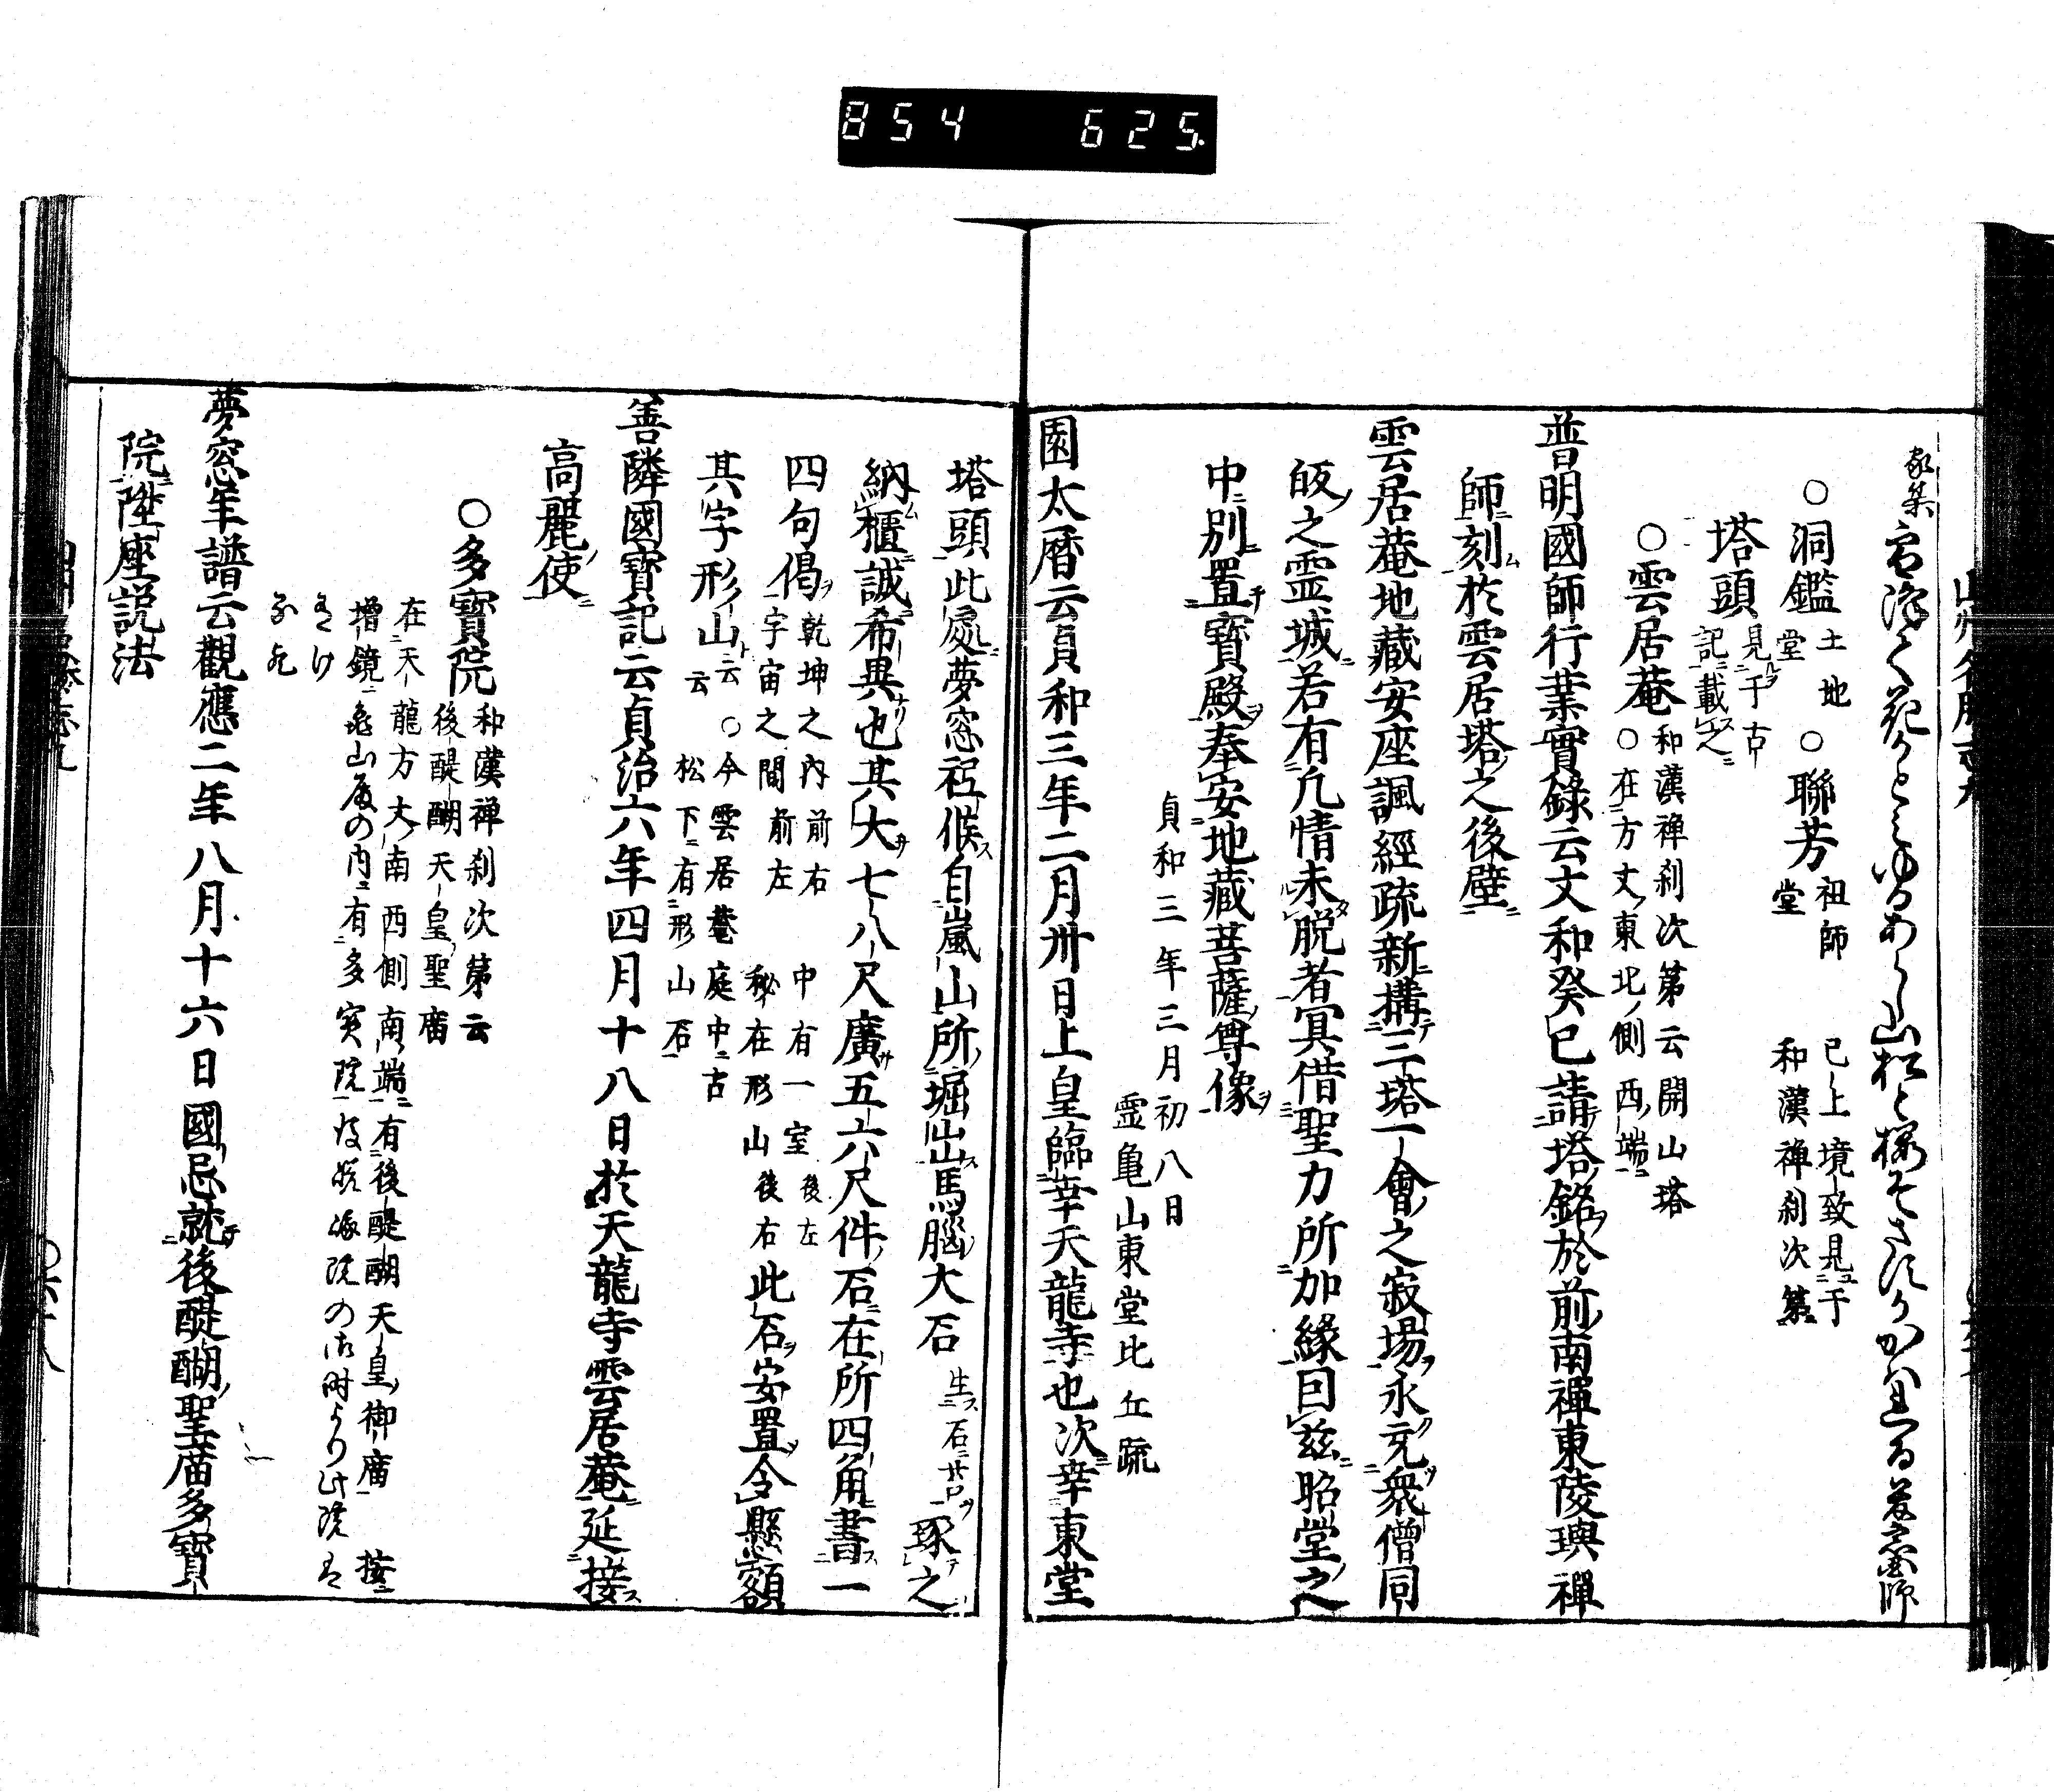 854 625
家集
○洞鑑 土地堂 ○聯芳 祖師堂 已上境致見于和漢禅刹次第
塔頭 見于古記載之
○雲居菴 和漢禅刹次第云開山塔○在方丈東北側西端
普明國師行業實錄云文和癸巳請塔銘於前南禪東陵璵禪
師刻於雲居塔之後壁
雲居菴地藏安座諷經疏新構三塔一會之寂場永充衆僧同
皈之霊城若有凢情未脱者冥借聖力所加縁曰茲昭堂之
中別置寶殿奉安地藏菩薩尊像
貞和三年三月初八日
霊亀山東堂比丘疏
園太暦云貞和三年二月卅日上皇臨幸天龍寺也次幸東堂
塔頭此處夢窓祗候自嵐山所堀出馬腦大石 生石苔 琢之
納櫃誠希異也其大七八尺廣五六尺件石在所四角書一
四句偈 乾坤之内前右 宇宙之間前左 中有一室後左 秘在形山後右 此石安置令懸額
其字形山云云 ○今雲居菴庭中古松下有形山石
善隣國寶記云貞治六年四月十八日於天龍寺雲居菴延接
高麗使
○多寶院 和漢禅刹次第云後醍醐天皇聖廟
在天龍方丈南西側南端有後醍醐天皇御廟 按
増鏡亀山殿の内有多宝院
夢窓年譜云觀應二年八月十六日國忌就後醍醐聖廟多寶
院陞座説法